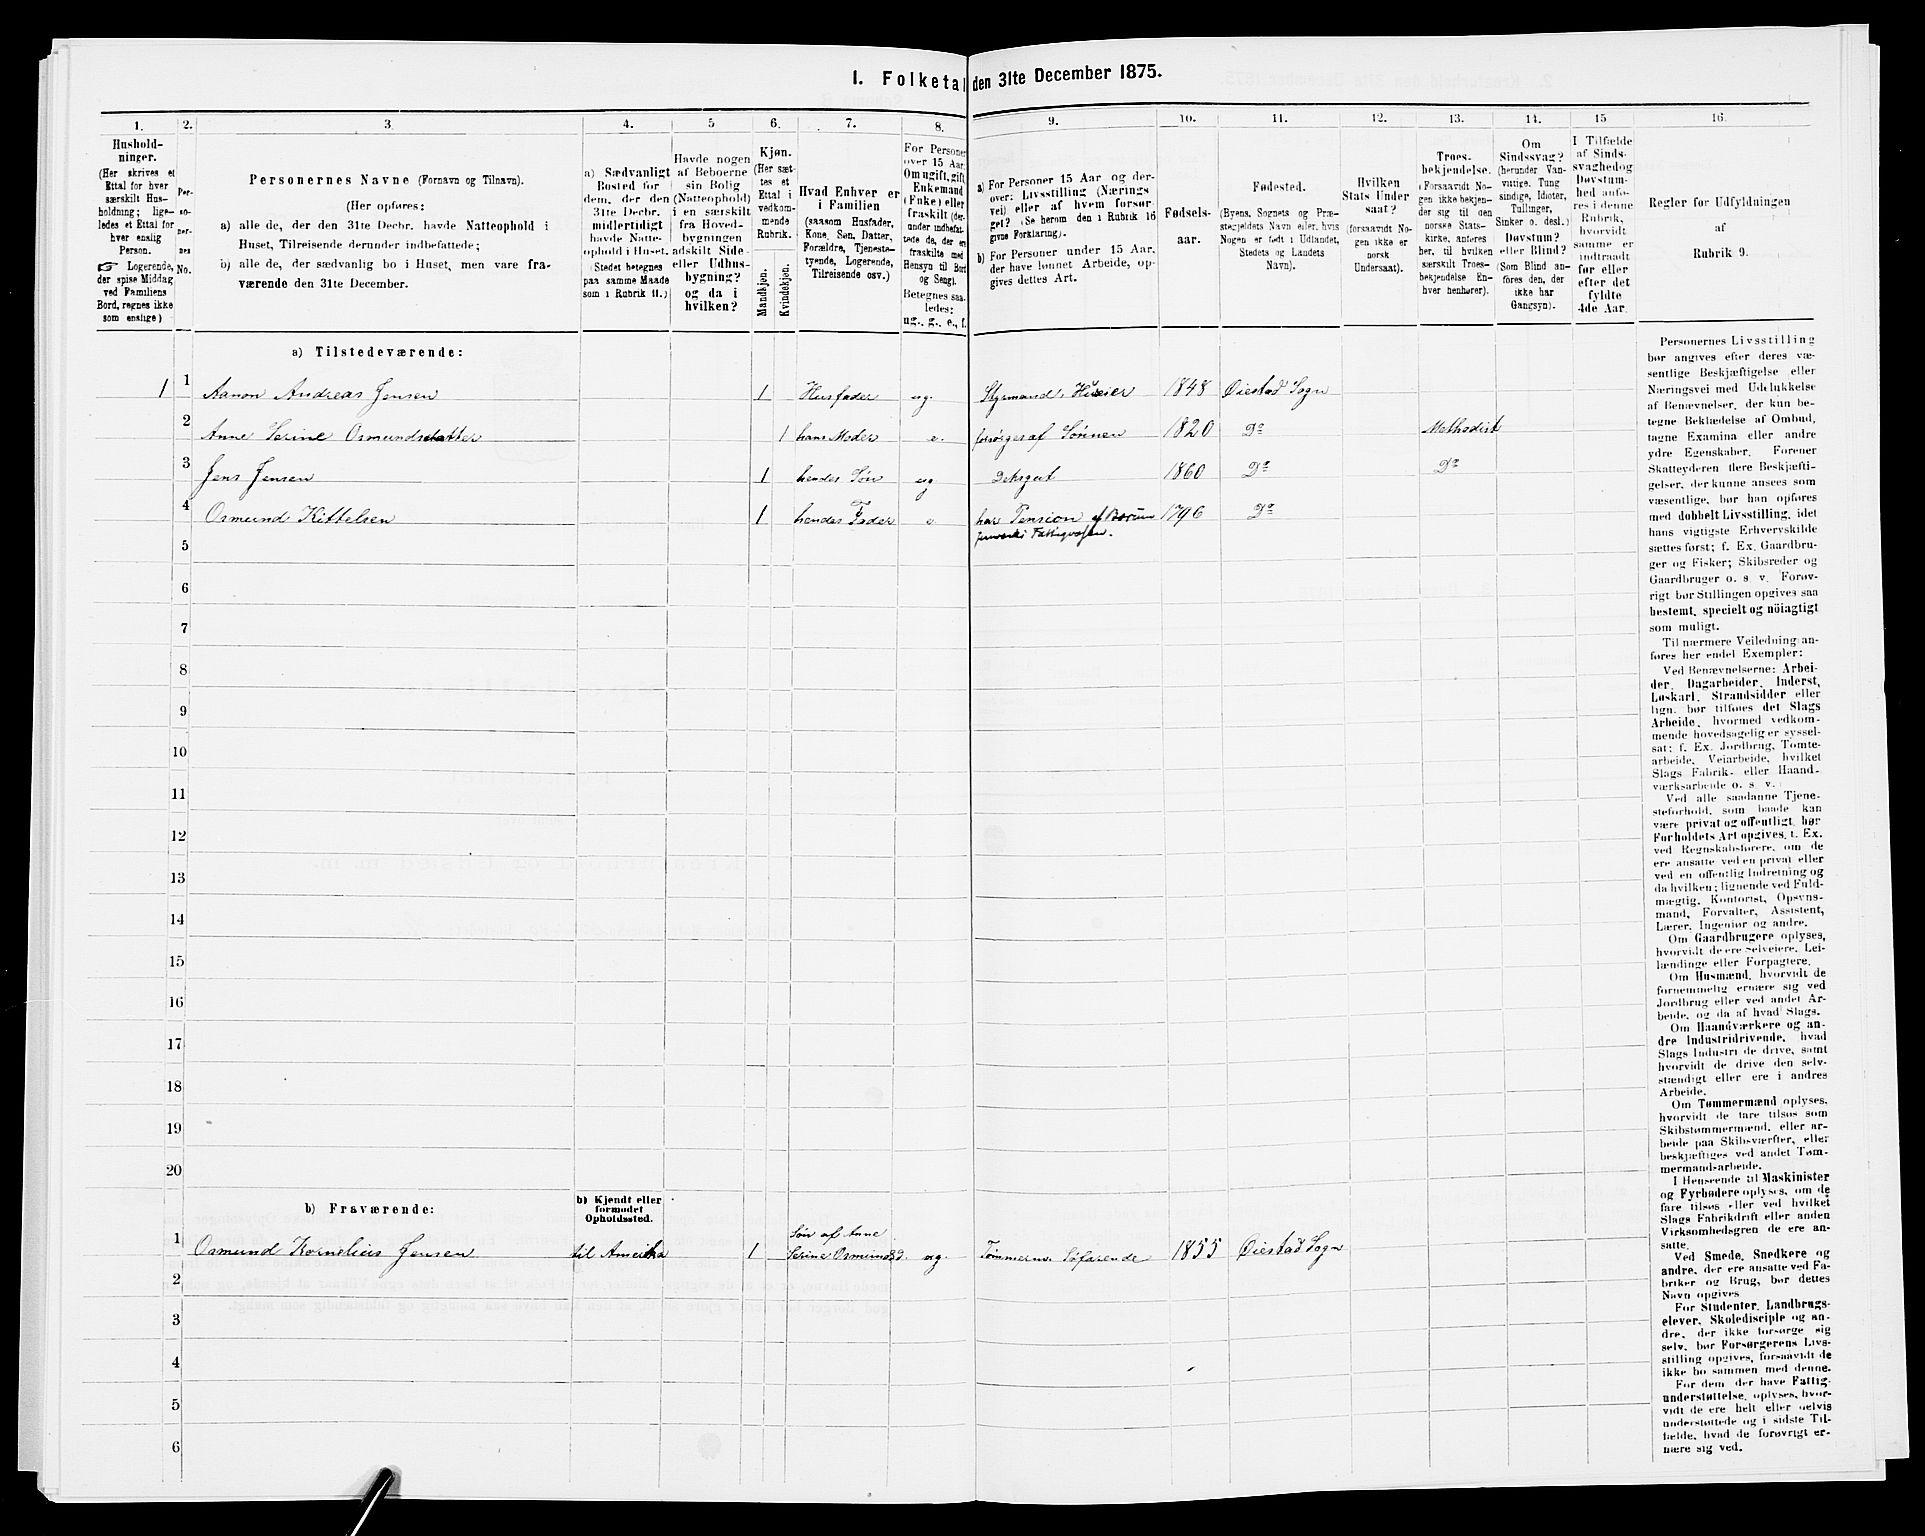 1. Folketal den 31te December 1875.
1.
Hushold-
ninger.
(Her skrives et
Ettal for hver
særskilt Hus-
holdning; lige-
ledes et Ettal for
hver enslig
Person.
☞ Logerende,
der spise Middag
ved Familiens
Bord, regnes ikke
som enslige)
2.
Per-
so-
ner-
nes
No.
3.
Personernes Navne (Fornavn og Tilnavn).
(Her opføres:
a) alle de, der den 31te Decbr. havde Natteophold i
Huset, Tilreisende derunder indbefattede;
b) alle de, der sædvanlig bo i Huset, men vare fra-
værende den 31te December.
4.
a) Sædvanligt
Bosted for
dem, der den
31te Decbr.
midlertidigt
havde Natte-
ophold i Huset.
(Stedet betegnes
paa samme Maade
som i Rubrik 11.)
5
Havde nogen
af Beboerne
sin Bolig
(Natteophold)
i en særskilt
fra Hoved-
bygningen
adskilt Side-
eller Udhus-
bygning?
og da i
hvilken?
6.
Kjøn.
(Her sæt-
tes et
Ettal i
vedkom-
mende
Rubrik.
Mandkjøn.
Kvindekjøn.
7.
Hvad Enhver er
i Familien
(saasom Husfader,
Kone, Søn, Datter,
Forældre, Tjeneste-
tyende, Logerende,
Tilreisende osv.)
8.
For Personer
over 15 Aar:
Om ugift, gift,
Enkemand
(Enke) eller
fraskilt (der-
under indbefat-
tede de, der ere
fraskilte med
Hensyn til Bord
og Seng).
Betegnes saa-
ledes:
ug., g., e., f.
9.
a) For Personer 15 Aar og der-
over: Livsstilling (Nærings
vei) eller af hvem forsør-
get? (Se herom den i Rubrik 16
givne Forklaring).
b) For Personer under 15 Aar,
der have lønnet Arbeide, op-
gives dettes Art.
10.
Fødsels-
aar.
11.
Fødested.
(Byens, Sognets og Præ-
stegjeldets Navn eller, hvis
Nogen er født i Udlandet,
Stedets og Landets
Navn).
12.
Hvilken
Stats Under
saat?
(forsaavidt No-
gen ikke er
norsk
Undersaat).
13.
Troes-
bekjendelse.
(Forsaavidt No-
gen ikke bekjen-
der sig til den
norske Stats-
kirke, anføres
her, til hvilken
særskilt Troes-
bekjendelse En-
hver henhører).
14.
Om
Sindssvag?
(herunder Van-
vittige, Tung
sindige, Idioter,
Tullinger,
Sinker o. desl.)
Døvstum?
eller Blind?
(Som Blind an-
føres den, der
ikke har
Gangsyn).
15
I Tilfælde
af Sinds-
svaghed og
Døvstum-
hed anfø-
res i denne
Rubrik,
hvorvidt
samme er
indtraadt
før eller
efter det
fyldte
4de Aar.
16.
Regler for Udfyldningen
af
Rubrik 9.
a) Tilstedeværende:
1 1 Aanon Andreas Jensen 1 Husfader ug. Styrmand, Huseier 1848 Øiestad Sogn
2 Anne Serine Osmundsdatter 1 hans Moder e. forsørges af Sønnen 1820 Do Methodist
3 Jens Jensen 1 hendes Søn ug Deksgut 1860 Do Do
4 Osmund Kittelsen 1 hendes Fader e har Pension af Bærum 1796 Do
Fattigvæsen.
5
6
7
8
9
10
11
12
13
14
15
16
17
18
19
20
b) Fraværende:
b) Kjendt eller
formodet
Opholdssted.
Søn af Anne
1 Osmund Kornelius Jensen til Amerika 1 Serine Osmundsd. ug. Tømmerm. Søfarende 1855 Øiestad Sogn
2
3
4
5
6
Personernes Livsstilling
bør angives efter deres væ-
sentlige Beskjæftigelse eller
Næringsvei med Udelukkelse
af Benævnelser, der kun be-
tegne Beklædelse af Ombud,
tagne Examina eller andre
ydre Egenskaber. Forener
Skatteyderen flere Beskjæfti-
gelser, der kunne ansees som
væsentlige, bør han opføres
med dobbelt Livsstilling, idet
hans vigtigste Erhvervskilde
sættes først; f. Ex. Gaardbru-
ger og Fisker; Skibsreder og
Gaardbruger o. s. v. Forøv-
rigt bør Stillingen opgives saa
bestemt, specielt og nöiagtigt
som muligt.
Til nærmere Veiledning an-
føres her endel Exempler:
Ved Benævnelserne: Arbei-
der, Dagarbeider, Inderst,
Løskarl, Strandsidder eller
lign. bør tilføies det Slags
Arbeide, hvormed vedkom-
mende hovedsagelig er syssel-
sat; f. Ex. Jordbrug, Tomte-
arbeide, Veiarbeide, hvilket
Slags Fabrik- eller Haand-
værksarbeide o. s. v.
Ved alle saadanne Tjene-
steforhold, som baade kan
være privat og offentligt, bør
Forholdets Art opgives, t. Ex.
ved Regnskabsførere, om de
ere ansatte ved en privat eller
ved en offentlig Indretning og
da hvilken; lignende ved Fuld-
mægtig, Kontorist, Opsyns-
mand, Forvalter, Assistent,
Lærer, Ingeniør og andre.
Om Gaardbrugere oplyses,
hvorvidt de ere Selveiere, Lei-
lændinge eller Forpagtere.
Om Husmænd, hvorvidt de
fornemmelig ernære sig ved
Jordbrug eller ved andet Ar-
beide, og da af hvad Slags.
Om Haandværkere og an-
dre Industridrivende, hvad
Slags Industri de drive, samt
hvorvidt de drive den selv-
stændigt eller ere i andres
Arbeide.
Om Tømmermænd oplyses,
hvorvidt de fare tilsøs som
Skibstømmermænd, eller ar-
beide paa Skibsværfter, eller
beskjæftiges ved andet Tøm-
mermandsarbeide.
I Henseende til Maskinister
og Fyrbødere oplyses, om de
fare tilsøs eller ved hvilket
Slags Fabrikdrift eller anden
Virksomhedsgren de ere an-
satte.
Ved Smede, Snedkere og
andre, der ere ansatte ved Fa-
briker og Brug, bør dettes
Navn opgives
For Studenter, Landbrugs-
elever, Skoledisciple og an-
dre, der ikke forsørge sig
selv, bør Forsørgerens Livs-
stilling opgives, forsaavidt de
ikke bo sammen med denne.
For dem, der have Fattig-
understøttelse, oplyses, hvor-
vidt de ere helt eller delvis
understøttede og i sidste Til-
fælde, hvad de forøvrigt er-
nære sig ved.